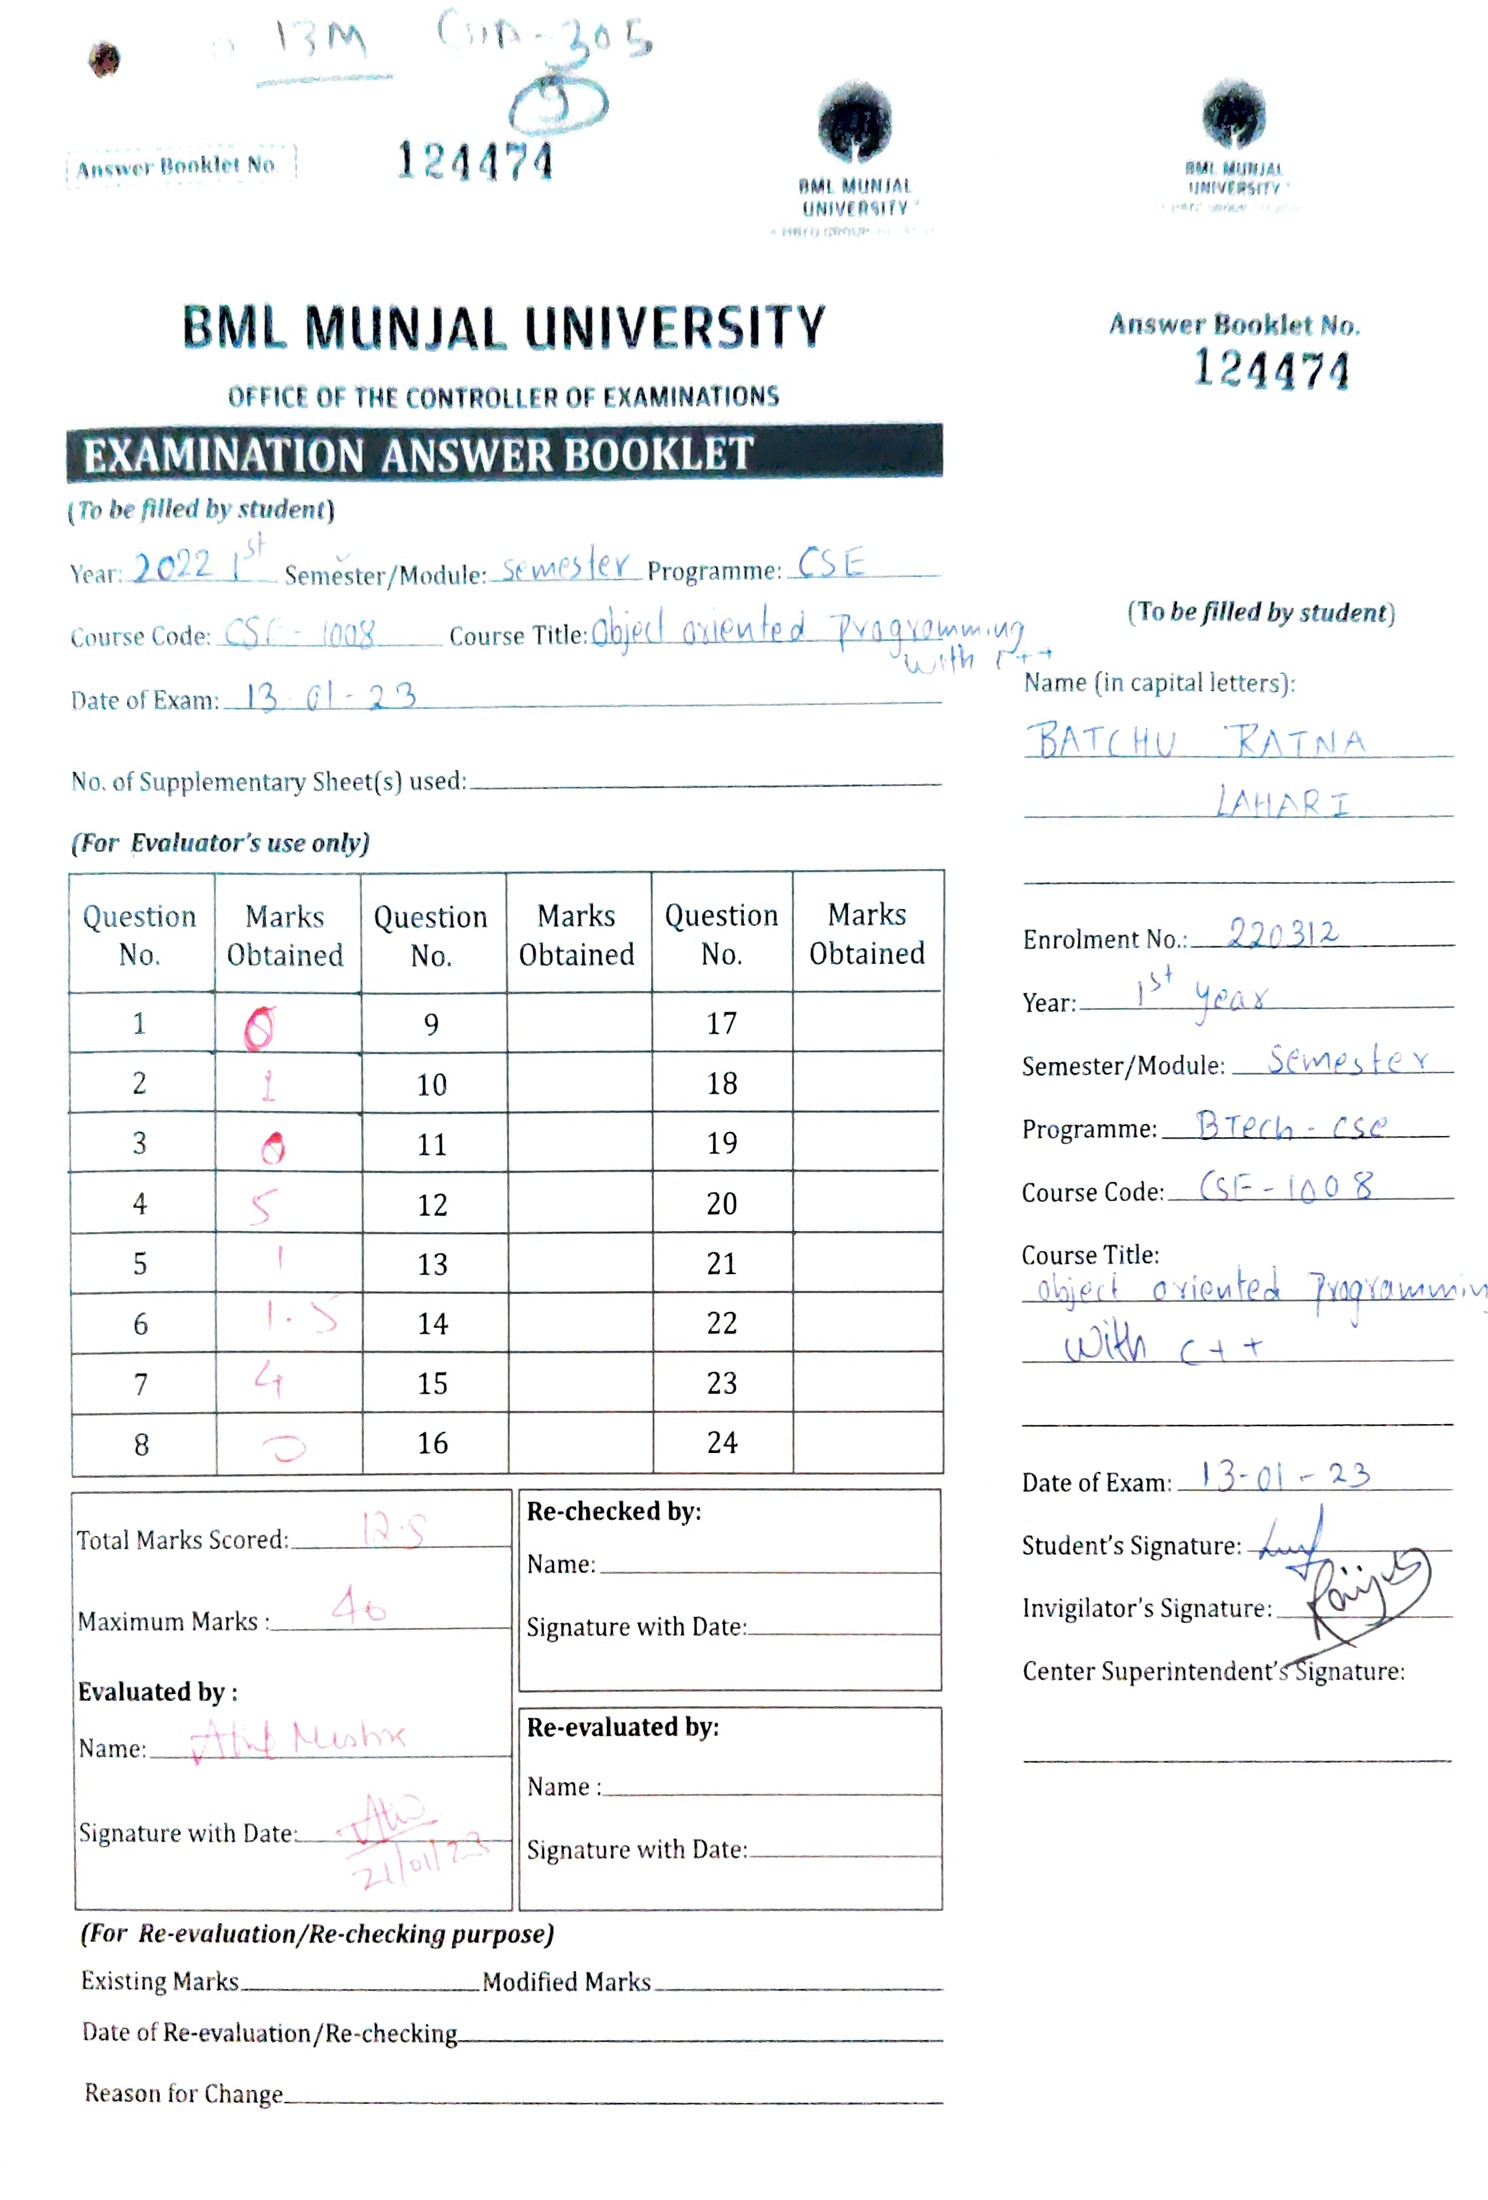 13M
305
9
Answer Booklet No.
124474
BML MUNJAL
UNIVERSITY
BML MUNJAL
UNIVERSITY
BML MUNJAL UNIVERSITY
OFFICE OF THE CONTROLLER OF EXAMINATIONS
EXAMINATION ANSWER BOOKLET
(To be filled by student)
Year: 2022 1st Semester/Module: semester Programme: CSE
Course Code: CSE-1008 Course Title: Object oriented programming
with C++
Date of Exam: 13-01-23
No. of Supplementary Sheet(s) used:
(For Evaluator's use only)
Question No. Marks Obtained Question No. Marks Obtained Question No. Marks Obtained
1 0 9 17
2 1 10 18
3 0 11 19
4 5 12 20
5 1 13 21
6 1.5 14 22
7 4 15 23
8 0 16 24
Total Marks Scored: 12.5
Maximum Marks : 40
Evaluated by :
Name:
Signature with Date:
21/01/23
Re-checked by:
Name:
Signature with Date:
Re-evaluated by:
Name :
Signature with Date:
(For Re-evaluation/Re-checking purpose)
Existing Marks Modified Marks
Date of Re-evaluation/Re-checking
Reason for Change
Answer Booklet No.
124474
(To be filled by student)
Name (in capital letters):
BATCHU RATNA
LAHARI
Enrolment No.: 220312
Year: 1st year
Semester/Module: Semester
Programme: BTech-cse
Course Code: CSE-1008
Course Title:
object oriented programmin
with c++
Date of Exam: 13-01-23
Student's Signature:
Invigilator's Signature:
Center Superintendent's Signature: